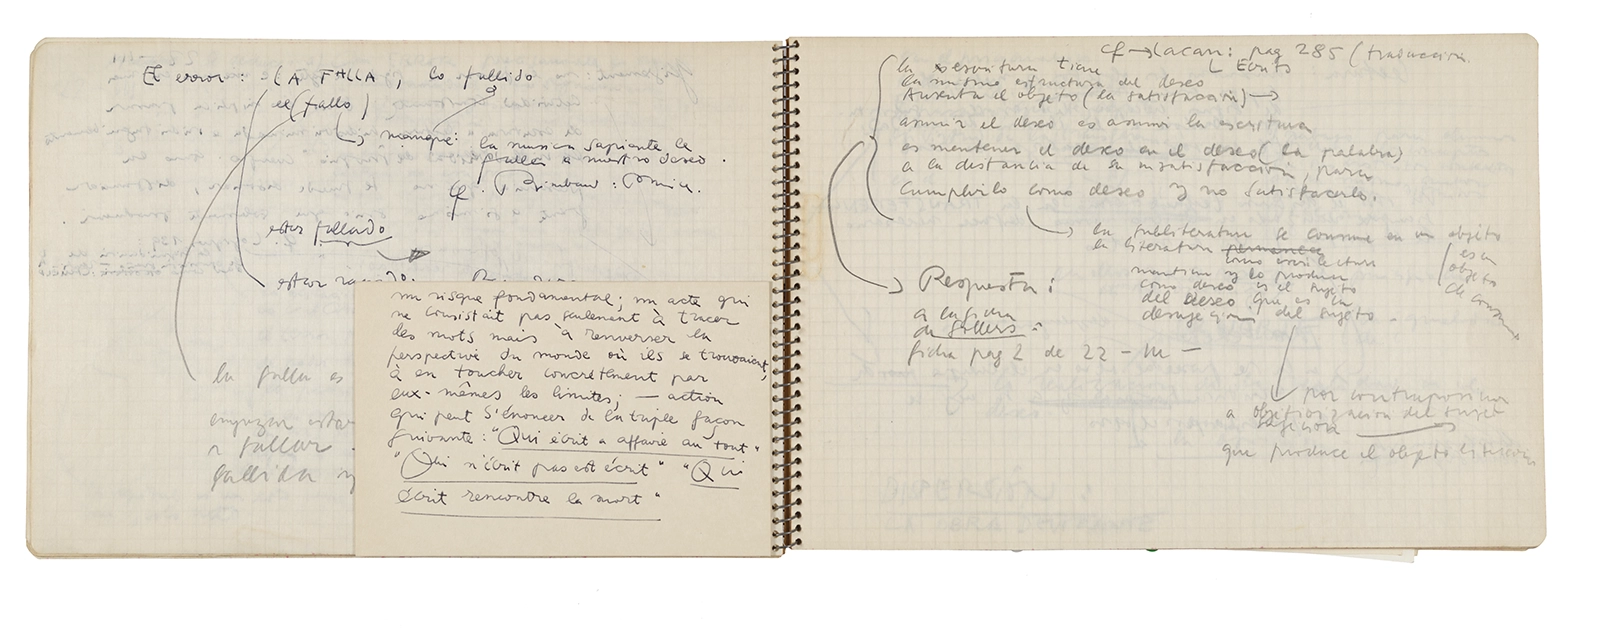 El error: LA FALLA, lo fallido
el (fallo)
manque: la musica sapiante le
falla a nuestro deseo.
cf. Rimbaud:
estar fallado
estar
la falla es
empezar estar
a fallar
fallida y
un risque fondamental; un acte qui
ne consistait pas seulement à tracer
des mots mais à renverser la
perspective du monde où ils se trouvaient,
à en toucher concrètement par
eux-mêmes les limites; — action
qui peut s'énoncer de la triple façon
suivante: "Qui écrit a affaire au tout"
"Qui n'écrit pas est écrit" "Qui
écrit rencontre la mort"
cf → Lacan: pag 285 (traducción
Ecrits
la escritura tiene
la misma estructura del deseo
Ausenta el objeto (la satisfacción) →
asumir el deseo es asumir la escritura
es mantener el deseo en el deseo (la palabra)
a la distancia de su insatisfacción, para
cumplirlo como deseo y no satisfacerlo.
la subliteratura se consume en un objeto
la literatura permanece
como escritura
mantiene y lo produce
como deseo es el sujeto
del deseo que es la
del sujeto.
es un
objeto
de consumo
Respuesta:
a la ficha
de Sollers:
ficha pag 2 de 22 - III -
por contraposición
a objetivización del sujeto
que produce el objeto literario